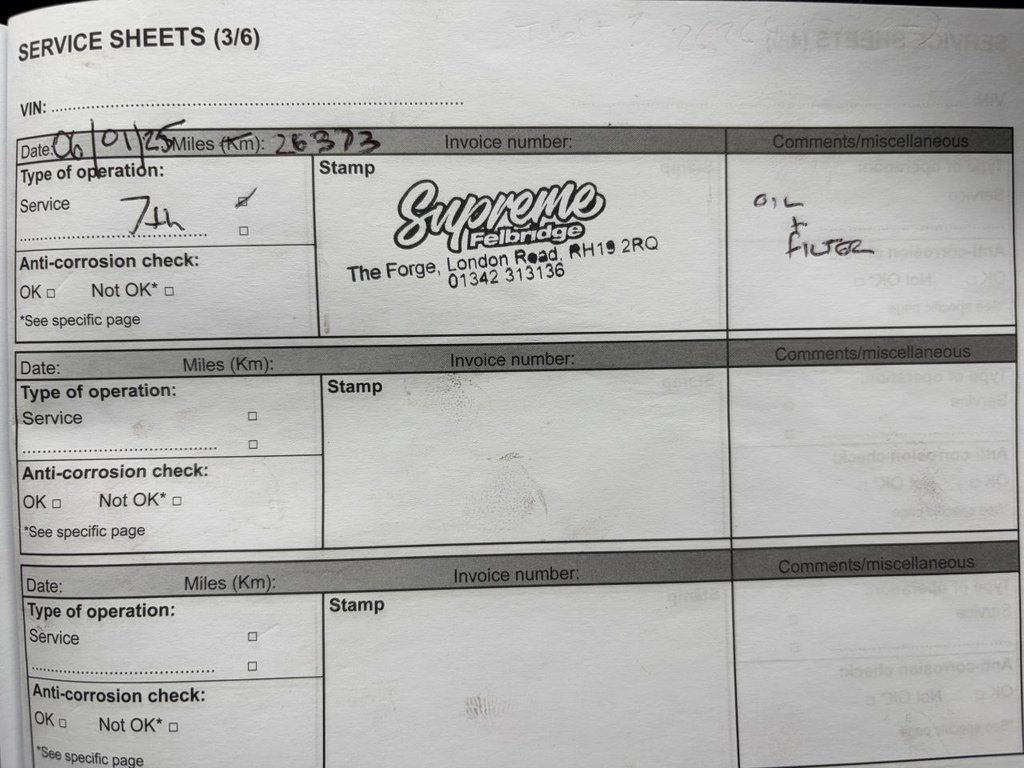 SERVICE SHEETS (3/6)
VIN:
Date: 06/01/25 Miles (Km): 26373 Invoice number: Comments/miscellaneous
Type of operation:
Service
7th
Anti-corrosion check:
OK Not OK*
*See specific page
Stamp
Supreme
Felbridge
The Forge, London Road, RH19 2RQ
01342 313136
OIL
+
FILTER
Date: Miles (Km): Invoice number: Comments/miscellaneous
Type of operation:
Service
Anti-corrosion check:
OK Not OK*
*See specific page
Stamp
Date: Miles (Km): Invoice number: Comments/miscellaneous
Type of operation:
Service
Anti-corrosion check:
OK Not OK*
*See specific page
Stamp